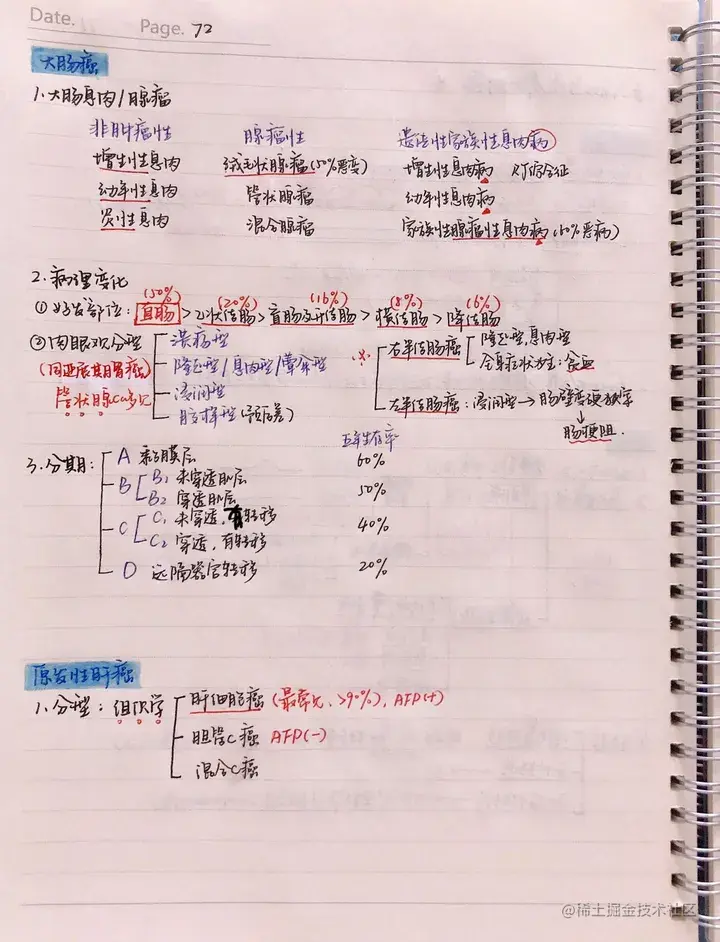 Date.
Page. 72
大肠癌
1.大肠息肉/腺瘤
非肿瘤性 腺瘤性 遗传性家族性息肉病
增生性息肉 绒毛状腺瘤(50%恶变) 增生性息肉病 RJ综合征
幼年性息肉 管状腺瘤 幼年性息肉病
炎性息肉 混合腺瘤 家族性腺瘤性息肉病
2.病理变化
(50%) (20%) (16%) (8%) (6%)
①好发部位:直肠>乙状结肠>盲肠及升结肠>横结肠>降结肠
②肉眼观分型 溃疡型
(同进展期胃癌) 隆起型/息肉型/蕈伞型
管状腺ca多见 浸润型
胶样型(预后差)
※ 右半结肠癌 隆起型、息肉型
全身症状为主:贫血
左半结肠癌:浸润型→肠壁变硬狭窄
↓
肠梗阻.
五年生存率
3.分期: A 黏膜层 60%
B B₁ 未穿透肌层 50%
B₂ 穿透肌层
C C₁ 未穿透,有转移 40%
C₂ 穿透,有转移
D 远隔器官转移 20%
原发性肝癌
1.分型:组织学 肝细胞癌(最常见,>90%), AFP(+)
胆管C癌 AFP(-)
混合C癌
@稀土掘金技术社区